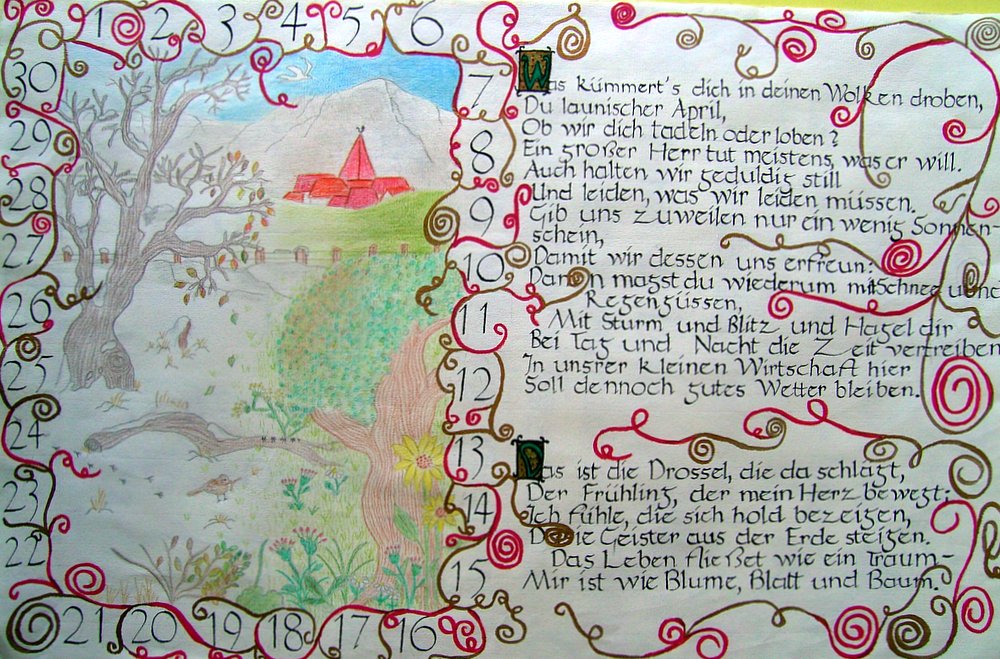 1 2 3 4 5 6
7
8
9
10
11
12
13
14
15
16
17
18
19
20
21
22
23
24
25
26
27
28
29
30
Was kümmert's dich in deinen Wolken droben,
Du launischer April,
Ob wir dich tadeln oder loben?
Ein großer Herr tut meistens, was er will.
Auch halten wir geduldig still
Und leiden, was wir leiden müssen.
Gib uns zuweilen nur ein wenig Sonnen-
schein,
Damit wir dessen uns erfreun:
Dann magst du wiederum mit Schnee und
Regengüssen,
Mit Sturm und Blitz und Hagel dir
Bei Tag und Nacht die Zeit vertreiben
In unsrer kleinen Wirtschaft hier
Soll dennoch gutes Wetter bleiben.
Das ist die Drossel, die da schlägt,
Der Frühling, der mein Herz bewegt;
Ich fühle, die sich hold bezeigen,
Die Geister aus der Erde steigen.
Das Leben fließet wie ein Traum-
Mir ist wie Blume, Blatt und Baum.